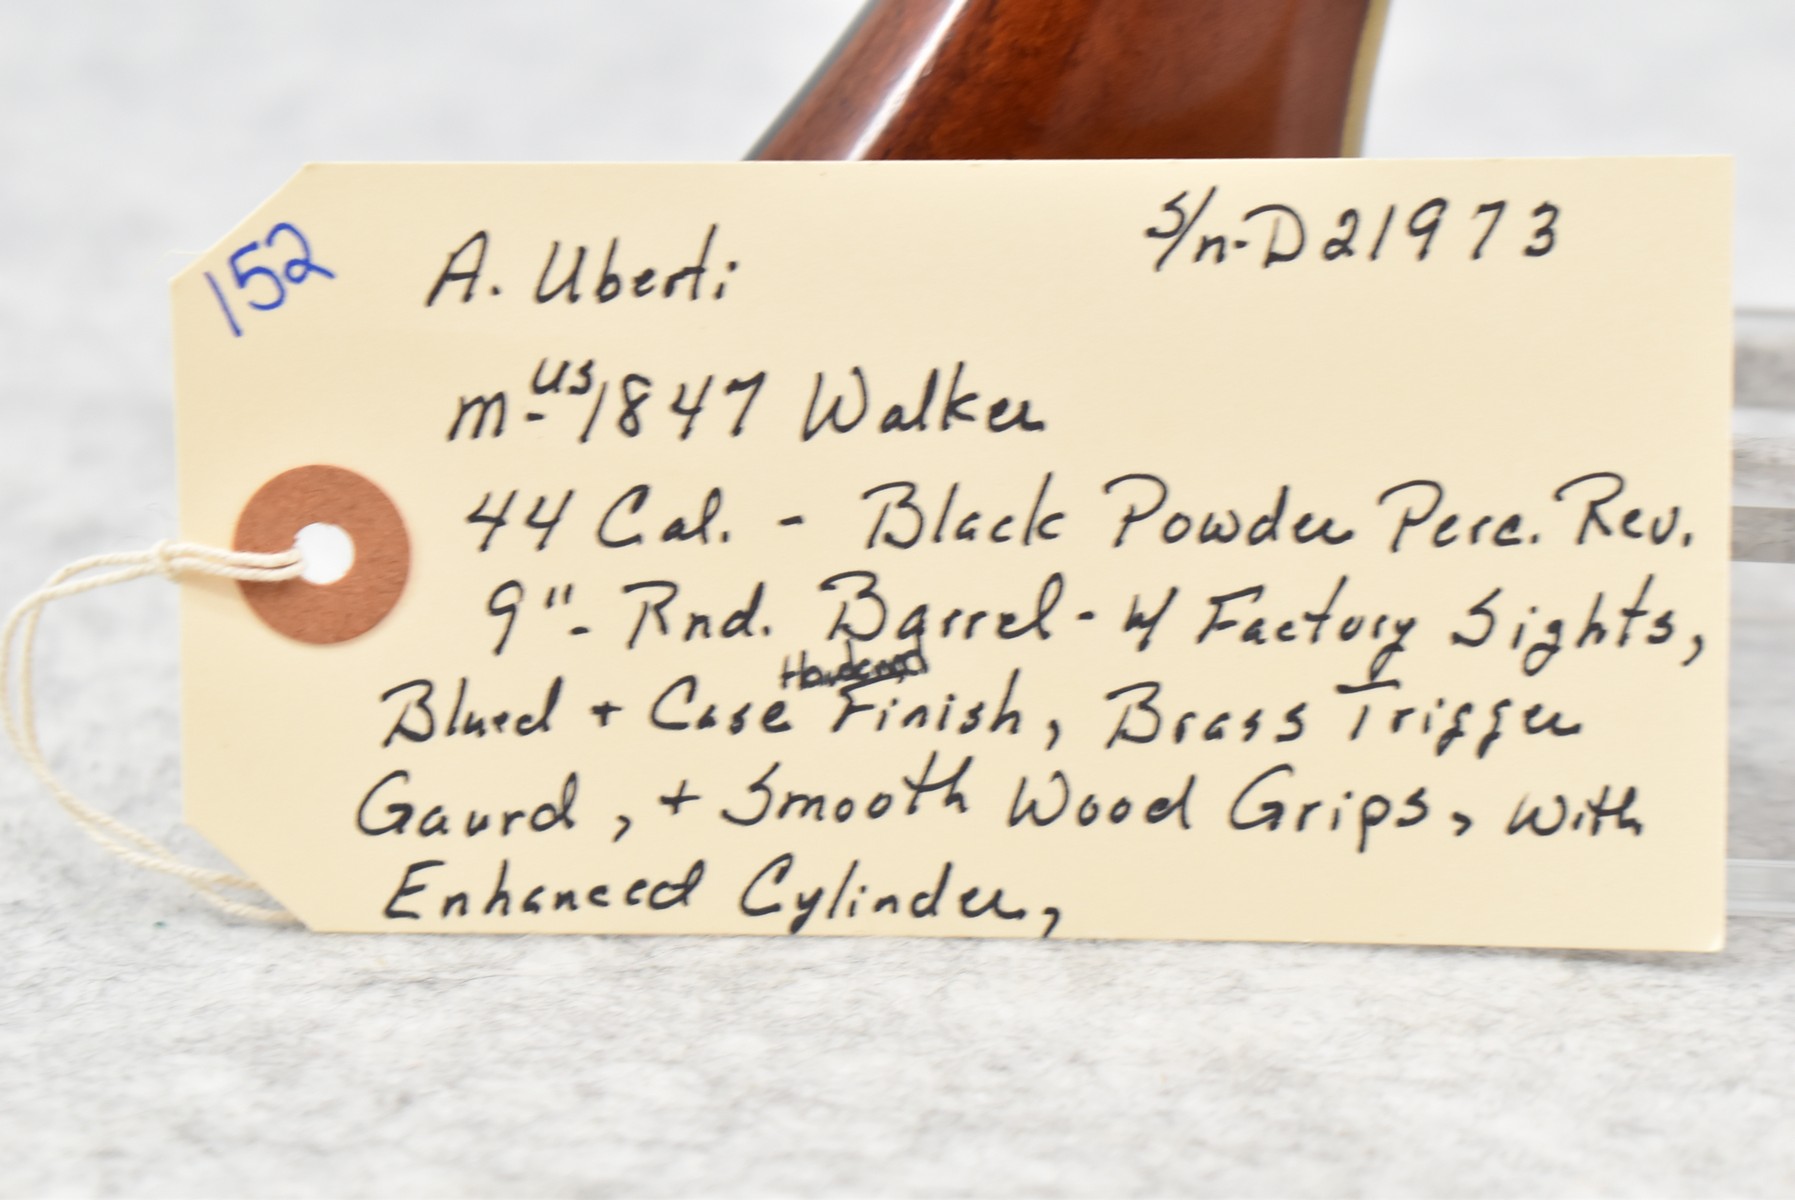 152
A. Uberti
S/n-D21973
M-US1847 Walker
44 Cal. - Black Powder Perc. Rev.
9"- Rnd. Barrel - W/ Factory Sights,
Hardened
Blued + Case Finish, Brass Trigger
Gaurd, + Smooth Wood Grips, With
Enhanced Cylinder,